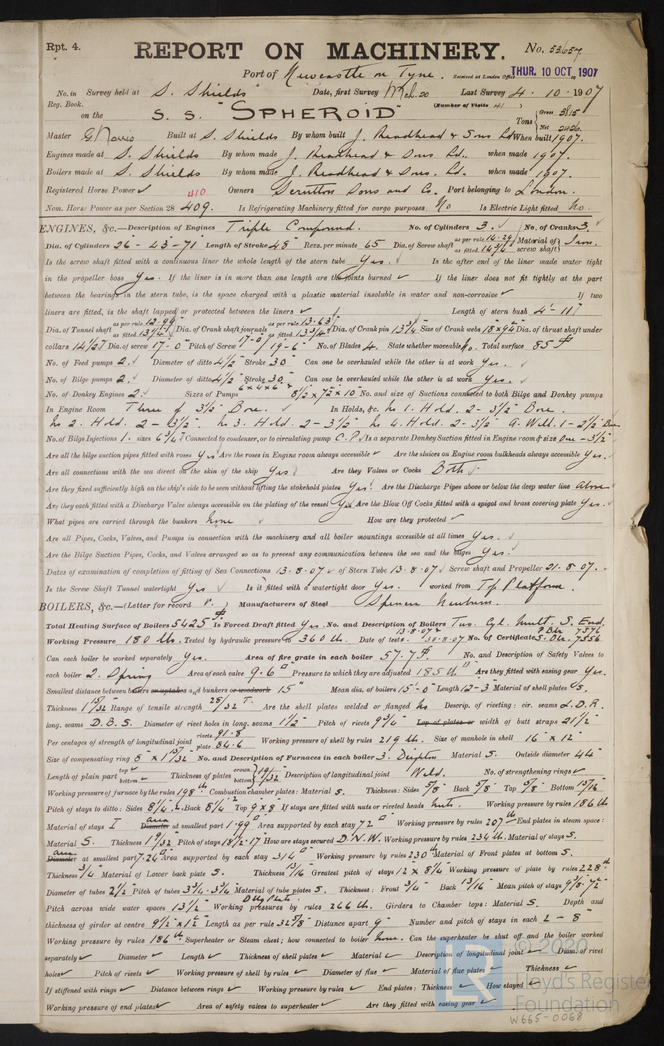 Rpt. 4. REPORT ON MACHINERY. No. 53657
Port of Newcastle on Tyne. Received at London Office THUR. 10 OCT. 1907
No. in Survey held at S. Shields Date, first Survey Mch. 20 Last Survey 4. 10. 1907
Reg. Book. (Number of Visits 41)
on the S. S. "SPHEROID" Tons { Gross 3815 Net 2426
Master G Norris Built at S. Shields By whom built J. Readhead & Sons Ld When built 1907.
Engines made at S. Shields By whom made J. Readhead & Sons Ld. when made 1907.
Boilers made at S. Shields By whom made J. Readhead & Sons, Ld. when made 1907.
Registered Horse Power 410 Owners Scrutton Sons and Co. Port belonging to London.
Nom. Horse Power as per Section 28 409. Is Refrigerating Machinery fitted for cargo purposes No Is Electric Light fitted No.
ENGINES, &c.—Description of Engines Triple Compound. No. of Cylinders 3. No. of Cranks 3.
Dia. of Cylinders 26 - 43 - 71 Length of Stroke 48" Revs. per minute 65 Dia. of Screw shaft as per rule 14.29 as fitted 14 3/4" Material of screw shaft Iron.
Is the screw shaft fitted with a continuous liner the whole length of the stern tube Yes. Is the after end of the liner made water tight
in the propeller boss Yes. If the liner is in more than one length are the joints burned If the liner does not fit tightly at the part
between the bearings in the stern tube, is the space charged with a plastic material insoluble in water and non-corrosive If two
liners are fitted, is the shaft lapped or protected between the liners Length of stern bush 4'- 11"
Dia. of Tunnel shaft as per rule 12.99 as fitted 13 1/4" Dia. of Crank shaft journals as per rule 13.63 as fitted 13 3/4" Dia. of Crank pin 13 3/4" Size of Crank webs 18 x 9 1/4" Dia. of thrust shaft under
collars 14 1/2" Dia. of screw 17-0" Pitch of Screw 17-0" / 19-6" No. of Blades 4. State whether moveable No. Total surface 85
No. of Feed pumps 2. Diameter of ditto 4 1/2" Stroke 30" Can one be overhauled while the other is at work Yes.
No. of Bilge pumps 2. Diameter of ditto 4 1/2" Stroke 30. Can one be overhauled while the other is at work Yes.
No. of Donkey Engines 2. Sizes of Pumps 6 x 4 x 6 8 1/2 x 7 1/2 x 10 No. and size of Suctions connected to both Bilge and Donkey pumps
In Engine Room Three of 3 1/2" Bore. In Holds, &c. No 1. Hold. 2 - 3 1/2" Bore.
No 2. Hold. 2 - 3 1/2". No 3. Hold. 2 - 3 1/2" No 4. Hold. 2 - 3 1/2" A. Well. 1 - 2 1/2" Bore
No. of Bilge Injections 1. sizes 6 3/4" Connected to condenser, or to circulating pump C. P. Is a separate Donkey Suction fitted in Engine room & size one - 3 1/2"
Are all the bilge suction pipes fitted with roses Yes Are the roses in Engine room always accessible Are the sluices on Engine room bulkheads always accessible Yes.
Are all connections with the sea direct on the skin of the ship Yes Are they Valves or Cocks Both
Are they fixed sufficiently high on the ship's side to be seen without lifting the stokehold plates Yes. Are the Discharge Pipes above or below the deep water line Above
Are they each fitted with a Discharge Valve always accessible on the plating of the vessel Yes Are the Blow Off Cocks fitted with a spigot and brass covering plate Yes.
What pipes are carried through the bunkers None How are they protected
Are all Pipes, Cocks, Valves, and Pumps in connection with the machinery and all boiler mountings accessible at all times Yes.
Are the Bilge Suction Pipes, Cocks, and Valves arranged so as to prevent any communication between the sea and the bilges Yes.
Dates of examination of completion of fitting of Sea Connections 13.8.07 of Stern Tube 13.8.07. Screw shaft and Propeller 21.8.07.
Is the Screw Shaft Tunnel watertight Yes Is it fitted with a watertight door Yes. worked from Top Platform.
BOILERS, &c.—(Letter for record P.) Manufacturers of Steel Spencer Newburn.
Total Heating Surface of Boilers 5425 Is Forced Draft fitted Yes. No. and Description of Boilers Two. Cyl. Mult. S. End.
Working Pressure 180 lbs. Tested by hydraulic pressure to 360 lb. Date of test 13.8.07 No. of Certificate 7556
Can each boiler be worked separately Yes. Area of fire grate in each boiler 57.7 No. and Description of Safety Valves to
each boiler 2. Spring Area of each valve 9.6" Pressure to which they are adjusted 185 lb Are they fitted with easing gear Yes.
Smallest distance between boilers or uptakes and bunkers or woodwork 15" Mean dia. of boilers 15'-0" Length 12-3 Material of shell plates S.
Thickness 1 15/32 Range of tensile strength 28/32 T. Are the shell plates welded or flanged No Descrip. of riveting: cir. seams L. D. R.
long. seams D.B.S. Diameter of rivet holes in long. seams 1 1/2" Pitch of rivets 9 3/4" Lap of plates or width of butt straps 21 1/2"
Per centages of strength of longitudinal joint rivets 91.8 plate 84.6 Working pressure of shell by rules 219 lb. Size of manhole in shell 16" x 12"
Size of compensating ring 8" x 1 15/32 No. and Description of Furnaces in each boiler 3. Deighton Material S. Outside diameter 44"
Length of plain part top bottom Thickness of plates crown bottom 19/32 Description of longitudinal joint Weld. No. of strengthening rings
Working pressure of furnace by the rules 198 lb. Combustion chamber plates: Material S. Thickness: Sides 5/8" Back 5/8" Top 5/8" Bottom 13/16"
Pitch of stays to ditto: Sides 8 1/4" Back 8 1/4" Top 9 x 8" If stays are fitted with nuts or riveted heads Nuts. Working pressure by rules 186 lb
Material of stays I Diameter area at smallest part 1.99" Area supported by each stay 72" Working pressure by rules 207 lb End plates in steam space:
Material S. Thickness 1 9/32 Pitch of stays 18 1/2 . 17 How are stays secured D.N.W. Working pressure by rules 234 lb. Material of stays S.
Diameter area at smallest part 7.24" Area supported by each stay 314 Working pressure by rules 230 lb Material of Front plates at bottom S.
Thickness 3/4" Material of Lower back plate S. Thickness 13/16" Greatest pitch of stays 12 x 8 1/4 Working pressure of plate by rules 228 lb
Diameter of tubes 2 1/2 Pitch of tubes 3 3/4 . 3 3/4 Material of tube plates S. Thickness: Front 3/4" Back 13/16" Mean pitch of stays
Pitch across wide water spaces 13 1/2" Working pressures by rules 266 lb. Girders to Chamber tops: Material S. Depth and
thickness of girder at centre 9 1/2 x 1 1/2 Length as per rule 32 5/8" Distance apart 9" Number and pitch of stays in each 2 - 8"
Working pressure by rules 186 lb Superheater or Steam chest; how connected to boiler None. Can the superheater be shut off and the boiler worked
separately Diameter Length Thickness of shell plates Material Description of longitudinal joint Diam. of rivet
holes Pitch of rivets Working pressure of shell by rules Diameter of flue Material of flue plates Thickness
If stiffened with rings Distance between rings Working pressure by rules End plates: Thickness How stayed
Working pressure of end plates Area of safety valves to superheater Are they fitted with easing gear
© 2020
Lloyd's Register
Foundation
W665-0068